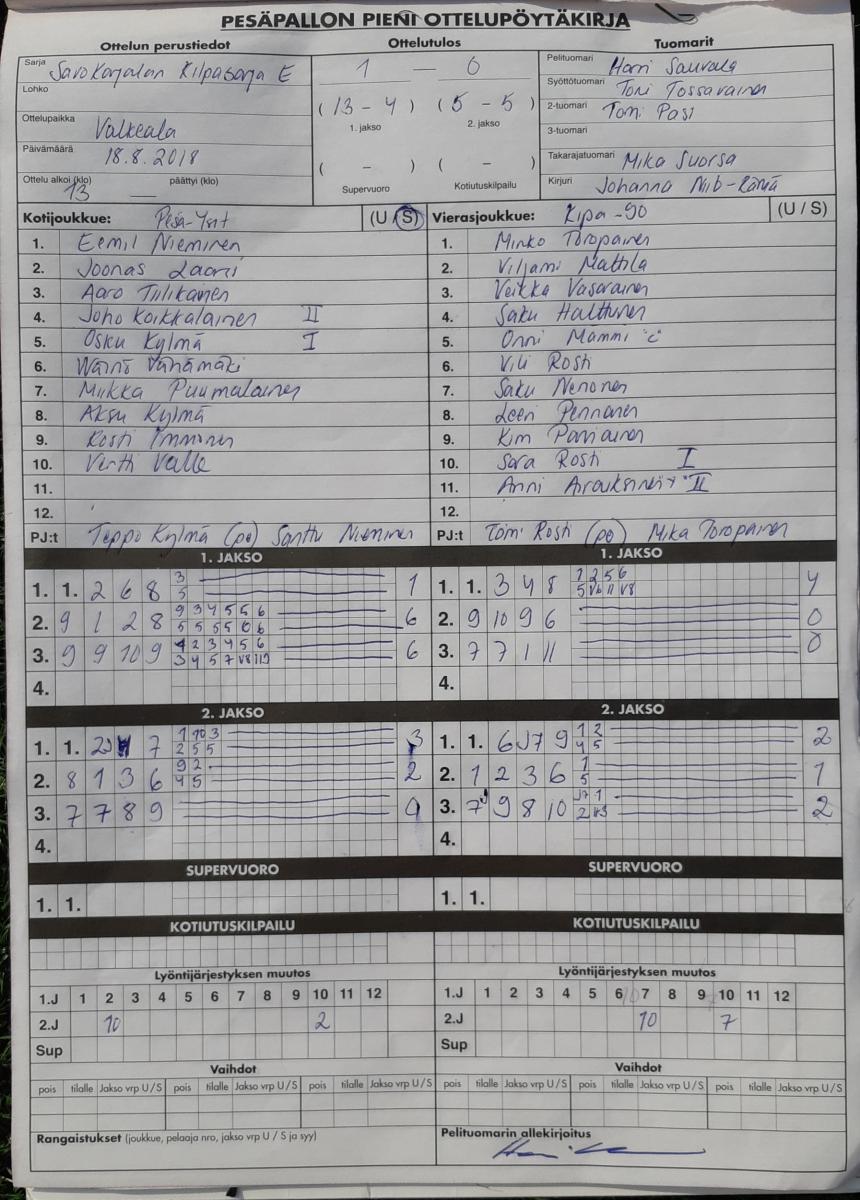 PESÄPALLON PIENI OTTELUPÖYTÄKIRJA
Ottelun perustiedot Ottelutulos Tuomarit
Sarja Savo Karjalan Kilpasarja E
Lohko
Ottelupaikka Valkeala
Päivämäärä 18.8.2018
Ottelu alkoi (klo) 13 päättyi (klo) —
1 — 0
(13 - 4) (5 - 5)
1. jakso 2. jakso
( - ) ( - )
Supervuoro Kotiutuskilpailu
Pelituomari Harri Sauvala
Syöttötuomari Toni Tossavainen
2-tuomari Tomi Pasi
3-tuomari
Takarajatuomari Mika Suorsa
Kirjuri Johanna
Kotijoukkue: Pesä-Ysit (U / S)
1. Eemil Nieminen
2. Joonas
3. Aaro Tiilikainen
4. Joho Koikkalainen II
5. Osku Kylmä I
6. Väinö Vähämäki
7. Miikka Puumalainen
8. Aksu Kylmä
9. Kosti Immonen
10. Vertti Valle
11.
12.
PJ:t Teppo Kylmä (pe) Santtu Nieminen
Vierasjoukkue: Kipa-90 (U / S)
1. Minko Toropainen
2. Viljami Mattila
3. Veikka Vasarainen
4. Saku Halttunen
5. Onni Mämmi "c"
6. Vili Rosti
7. Saku Nenonen
8. Leevi Pennanen
9. Kim Parviainen
10. Sara Rosti I
11. Anni II
12.
PJ:t Tomi Rosti (pe) Mika Toropainen
1. JAKSO
1. 1. 2 6 8 3 1
5
2. 9 1 2 8 9 3 4 5 5 6 6
5 5 5 5 6 6
3. 9 9 10 9 1 2 3 4 5 6 6
3 4 5 7 V8 11
4.
1. JAKSO
1. 1. 3 4 8 1 2 5 6 4
5 V6 11 V8
2. 9 10 9 6 0
3. 7 7 1 11 0
4.
2. JAKSO
1. 1. 2J 7 1 10 3 3
2 5 5
2. 8 1 3 6 9 2 2
4 5
3. 7 7 8 9 0
4.
2. JAKSO
1. 1. 6 J7 9 1 2 2
4 5
2. 1 2 3 6 1 1
5
3. 7J 9 8 10 J7 1 2
2 V3
4.
SUPERVUORO SUPERVUORO
1. 1. 1. 1.
KOTIUTUSKILPAILU KOTIUTUSKILPAILU
Lyöntijärjestyksen muutos Lyöntijärjestyksen muutos
1.J 1 2 3 4 5 6 7 8 9 10 11 12 1.J 1 2 3 4 5 6 7 8 9 10 11 12
2.J 10 2 2.J 10 7
Sup Sup
Vaihdot Vaihdot
pois tilalle Jakso vrp U / S pois tilalle Jakso vrp U / S pois tilalle Jakso vrp U / S pois tilalle Jakso vrp U / S pois tilalle Jakso vrp U / S pois tilalle Jakso vrp U / S
Rangaistukset (joukkue, pelaaja nro, jakso vrp U / S ja syy) Pelituomarin allekirjoitus